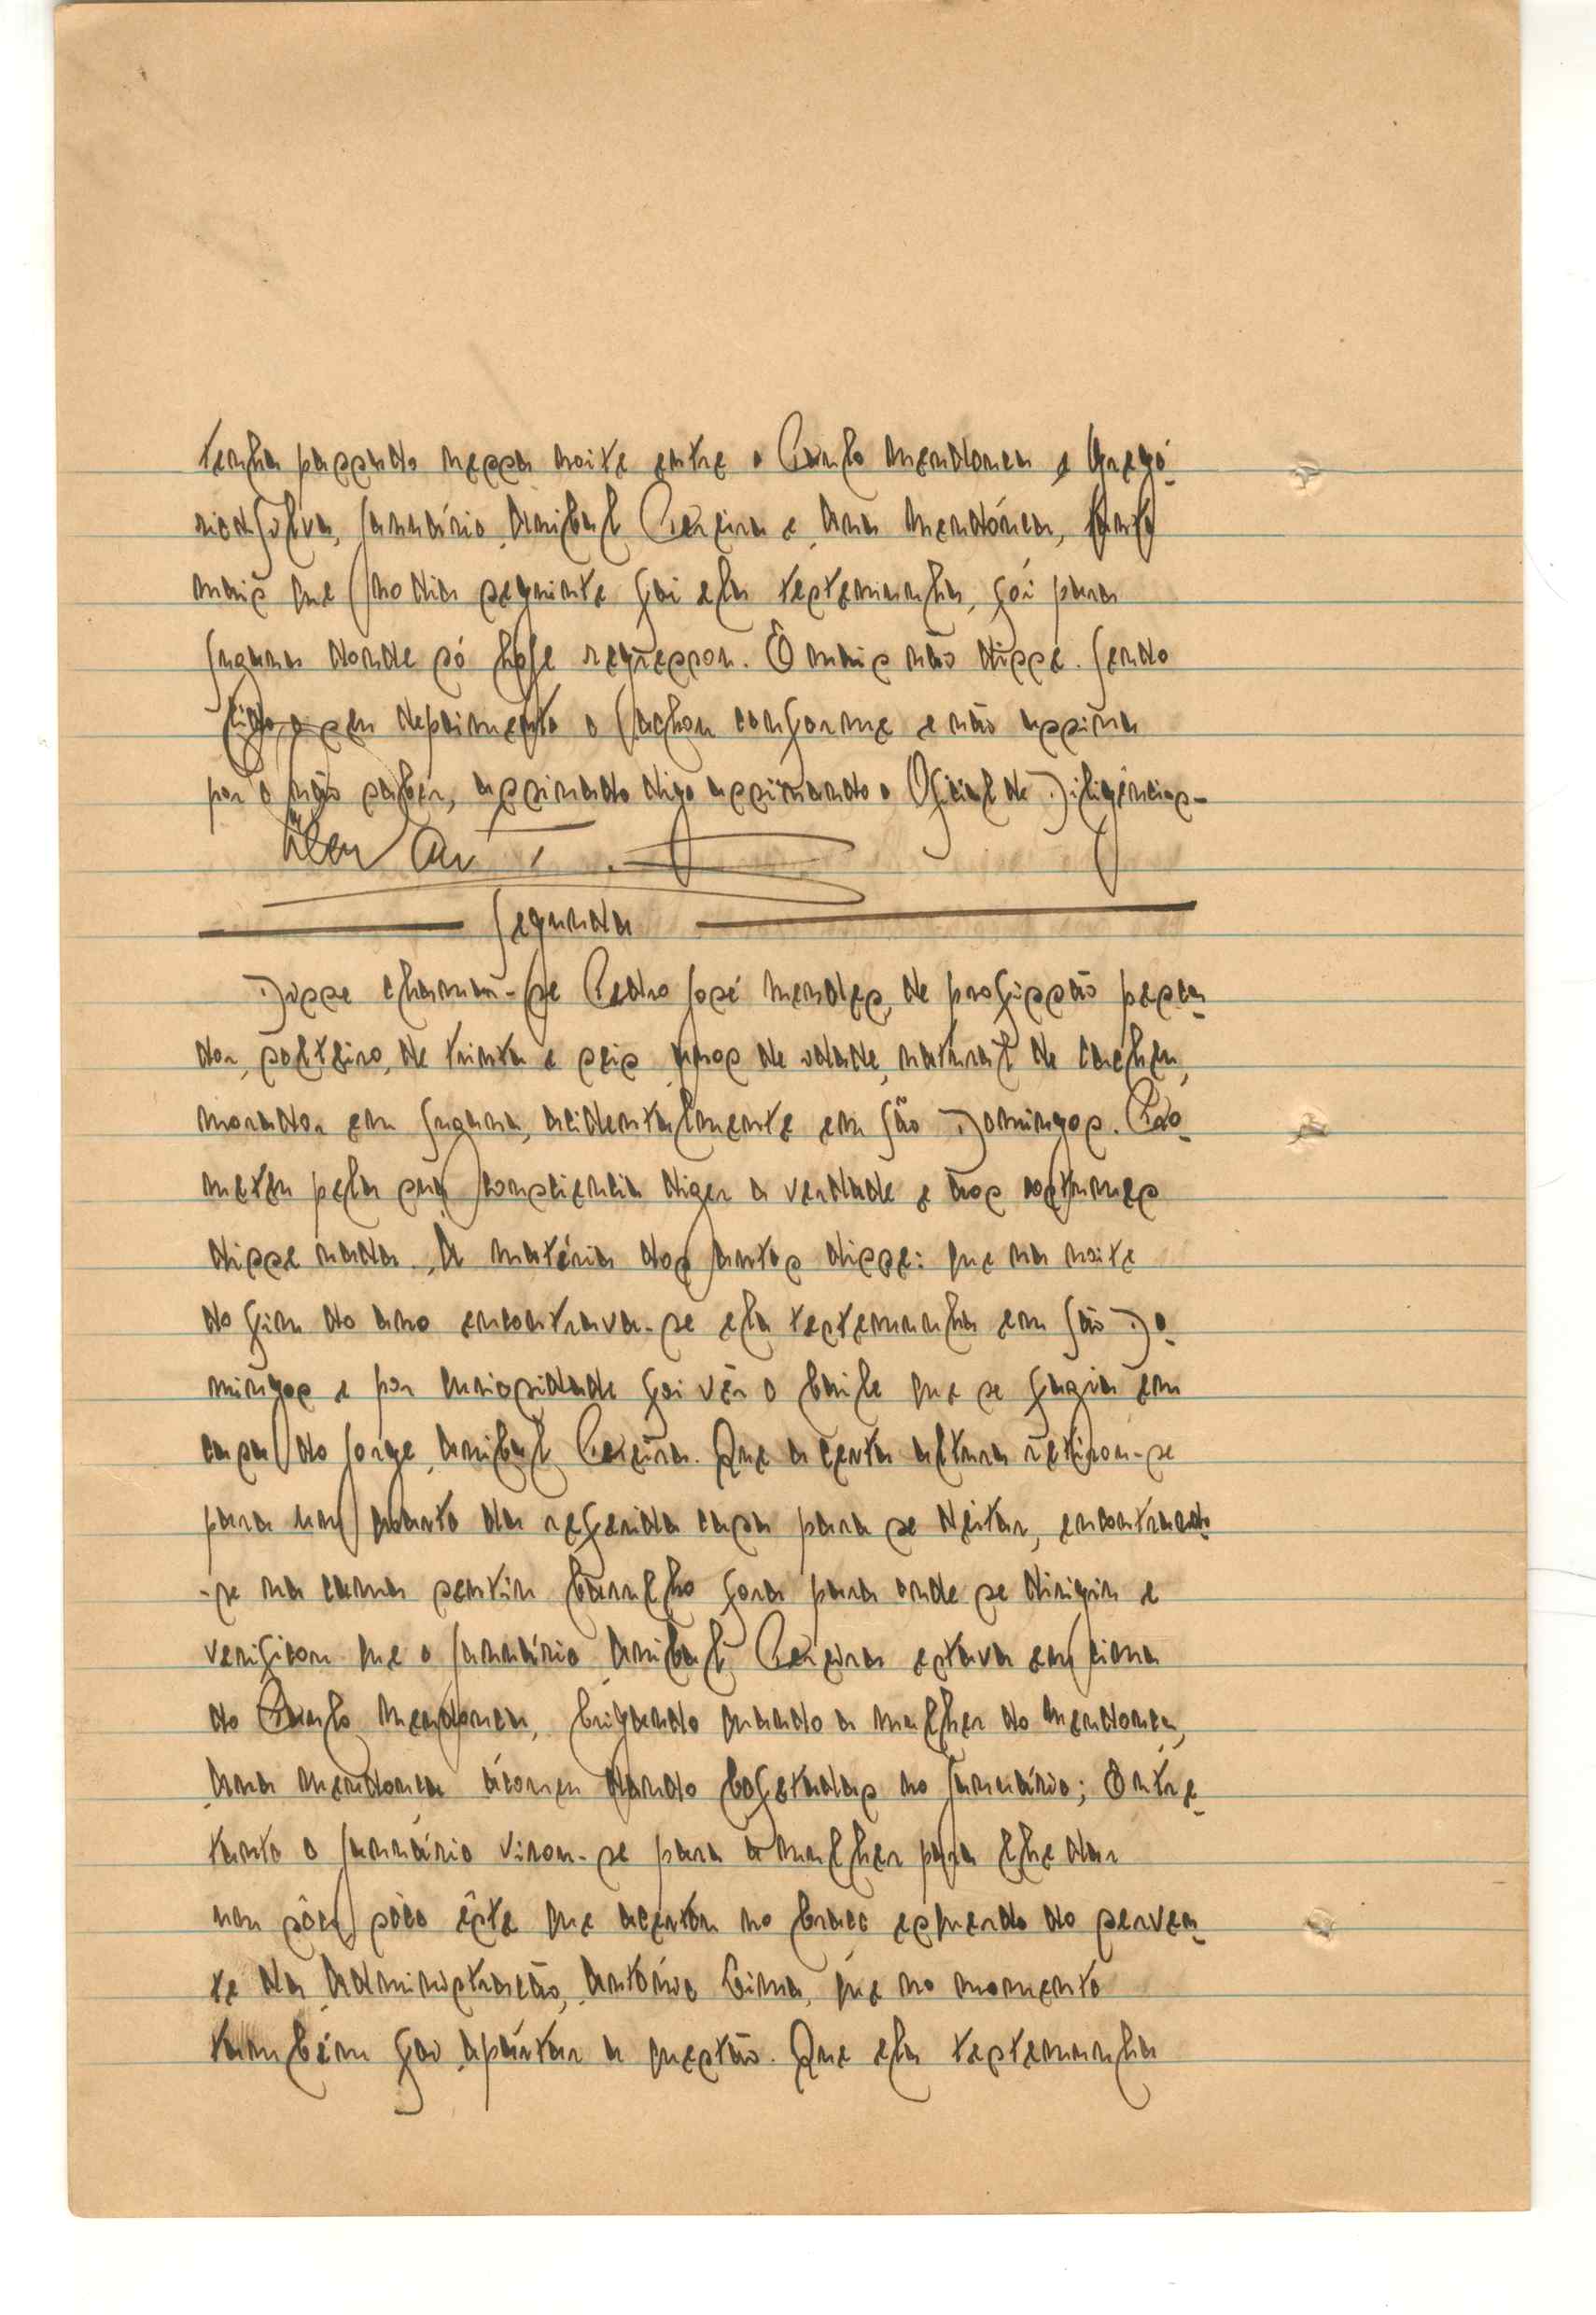 tenha passado nessa noite entre o Paulo Mendonca e Gregó-
rio da Silva, Januário Anibal Pereira e Ana Mendónca, tanto
mais que no dia seguinte foi ela testemunha, foi para
Suzana donde só hoje regressou. E mais não disse. Sendo
lido o seu depoimento o achou conforme e não assina
por o não saber, assinado digo assinando o Oficial de Diligências-
Segunda
Disse chamar-se Pedro José Mendes, de profissão pesca-
dor, solteiro, de trinta e seis anos de idade, natural de Cacheu,
morador em Suzana, acidentalmente em São Domingos. Pro-
meteu pela sua consciencia dizer a verdade e aos costumes
disse nada. A matéria dos autos disse: que na noite
do fim do ano encontrava-se ela testemunha em São Do-
mingos e por curiosidade foi vêr o baile que se fazia em
casa do Jorge Anibal Pereira. Que a certa altura retirou-se
para um quarto da referida casa para se deitar, encontrando
-se na cama sentiu barulho fora para onde se dirigiu e
verificou que o Januário Anibal Pereira estava em cima
do Paulo Mendonca, brigando quando a mulher do Mendonca,
Ana Mendonca ácorreu dando bofetadas no Januário; Entre-
tanto o Januário virou-se para a mulher para lhe dar
um sôco sôco êste que acertou no braco esquerdo do serven-
te da Administracão, António Bima, que no momento
tambêm foi apartar a questão. Que ela testemunha